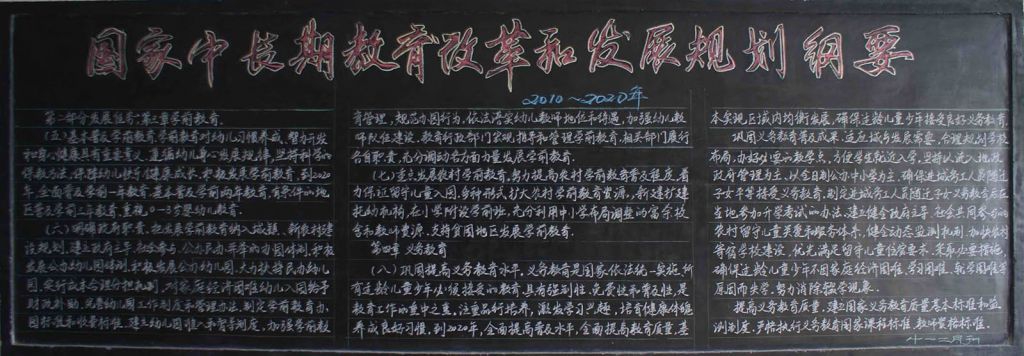 国家中长期教育改革和发展规划纲要
2010~2020年
第二部分发展任务 第三章学前教育
(五)基本普及学前教育学前教育对幼儿习惯养成、智力开发
和身心健康具有重要意义、遵循幼儿身心发展规律,坚持科学的
保教方法,保障幼儿快乐健康成长,积极发展学前教育,到2020
年,全面普及学前一年教育,基本普及学前两年教育,有条件的地
区普及学前三年教育,重视0-3岁婴幼儿教育.
(六)明确政府职责,把发展学前教育纳入城镇、新农村建
设规划,建立政府主导,社会参与,公办民办并举的办园体制,积极
发展公办幼儿园,大力扶持民办幼儿
园,实行成本合理分担机制,对家庭经济困难幼儿入园给予
财政补助,完善幼儿园工作制度和管理办法,制定学前教育办
园标准和收费标准,建立幼儿园准入和督导制度,加强学前教
育管理,规范办园行为,依法落实幼儿教师地位和待遇,加强幼儿教
师队伍建设,教育行政部门宏观指导和管理学前教育,相关部门履行
各自职责,充分调动各方面力量发展学前教育.
(七)重点发展农村学前教育,努力提高农村学前教育普及程度,着
力保证留守儿童入园,多种形式扩大农村学前教育资源,新建扩建
托幼机构,在小学附设学前班,充分利用中小学布局调整的富余校
舍和教师资源,支持贫困地区发展学前教育.
第四章 义务教育
(八)巩固提高义务教育水平,义务教育是国家依法统一实施,所
有适龄儿童少年必须接受的教育,具有强制性,免费性和普及性,是
教育工作的重中之重,注重品行培养,激发学习兴趣,培育健康体魄
养成良好习惯,到2020年,全面提高普及水平,全面提高教育质量,基
本实现区域内均衡发展,确保适龄儿童少年接受良好义务教育
巩固义务教育普及成果,适应城乡发展需要,合理规划学校
布局,办好必要的教学点,方便学生就近入学,坚持以流入地政
政府管理为主,以全日制公办中小学为主,确保进城务工人员随迁
子女平等接受义务教育,制定进城务工人员随迁子女义务教育后在
当地参加升学考试的办法,建立健全政府主导,社会共同参与的
农村留守儿童关爱和服务体系,健全动态监测机制,加快农村
寄宿学校建设,优先满足留守儿童住宿要求,采取必要措施,
确保适龄儿童少年不因家庭经济困难、学习困难、就学困难等
原因而失学,努力消除辍学现象.
提高义务教育质量,建立国家义务教育质量基本标准和监
测制度,严格执行义务教育国家课程标准,教师资格标准.
十一二月刊